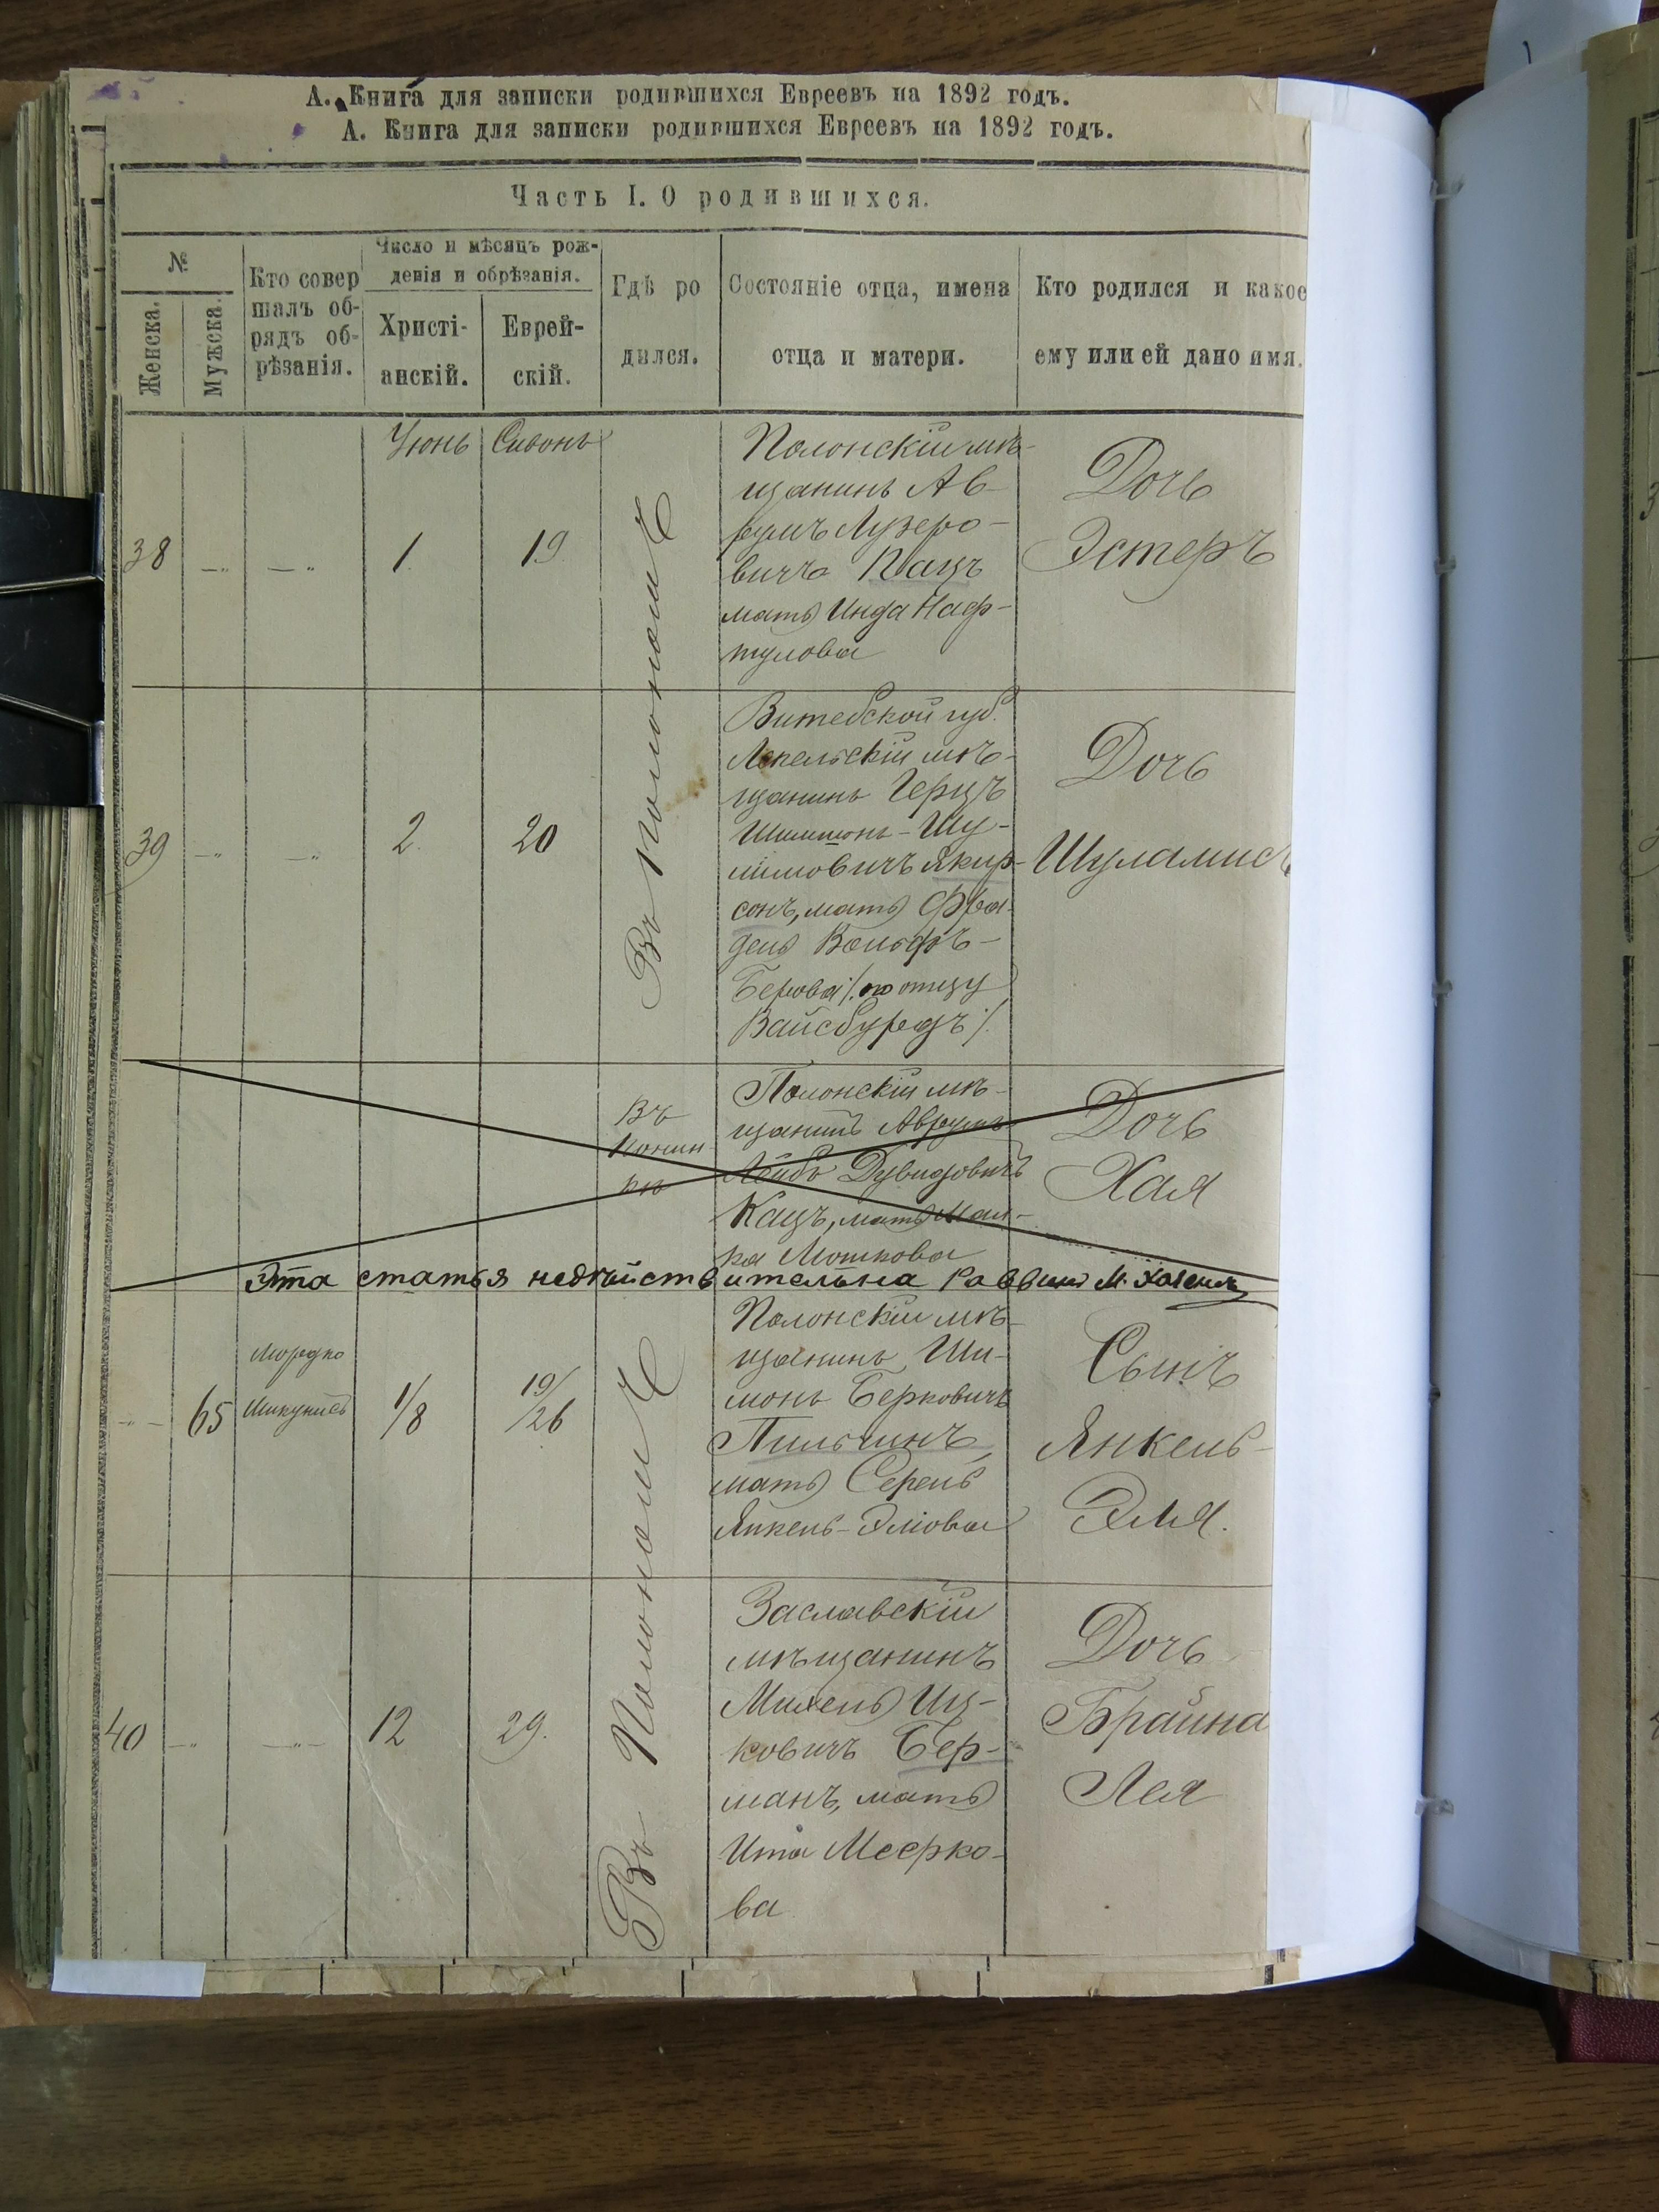 А. Книга для записки родившихся Евреевъ на 1892 годъ.
А. Книга для записки родившихся Евреевъ на 1892 годъ.
Часть I. О родившихся.
№
Женска.
Мужска.
Кто совер
шалъ об-
рядъ об-
рѣзанія.
Число и мѣсяцъ рож-
денія и обрѣзанія.
Христі-
анскій.
Еврей-
скій.
Гдѣ ро
дился.
Состояніе отца, имена
отца и матери.
Кто родился и какое
ему или ей дано имя.
Іюнь
Сивонъ
38
1.
19
Въ Полономъ
Полонскій мѣ-
щанинъ Ав-
румъ Лузеро-
вичъ Кацъ
мать Инда Наф-
тулова
Дочь
Эстеръ
39
2.
20
Витебской губ.
Лепельскій мѣ-
щанинъ Герцъ
Шимшонъ-Шу-
лимовичъ Якир-
сонъ, мать Фра-
дель Вольфъ-
Берова /. по отцу
Вайсбурдъ /.
Дочь
Шуламись
Въ
Конин-
кѣ
Полонскій мѣ-
щанинъ Аврумъ
Лейбъ Дувидовичъ
Кацъ, мать Мал-
ка Мошкова
Дочь
Хая
Эта статья недѣйствительна Раввинъ М.
65
Мордко
Шикунисъ
1/8
19/26
Въ Полономъ
Полонскій мѣ-
щанинъ Ши-
монъ Берковичъ
Пильчинъ,
мать Серель
Янкель-Эліова
Сынъ
Янкель-
Эля.
40
12
29.
Заславскій
мѣщанинъ
Михель Иц-
ковичъ Бер-
манъ, мать
Ита Меерко-
ва
Дочь
Брайна
Лея